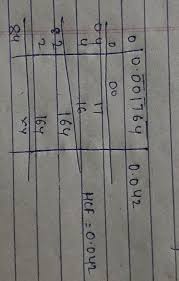 0 0.001764 0.042
0 00
04 17
4 16 HCF = 0.042
82 164
2 164
84 xx